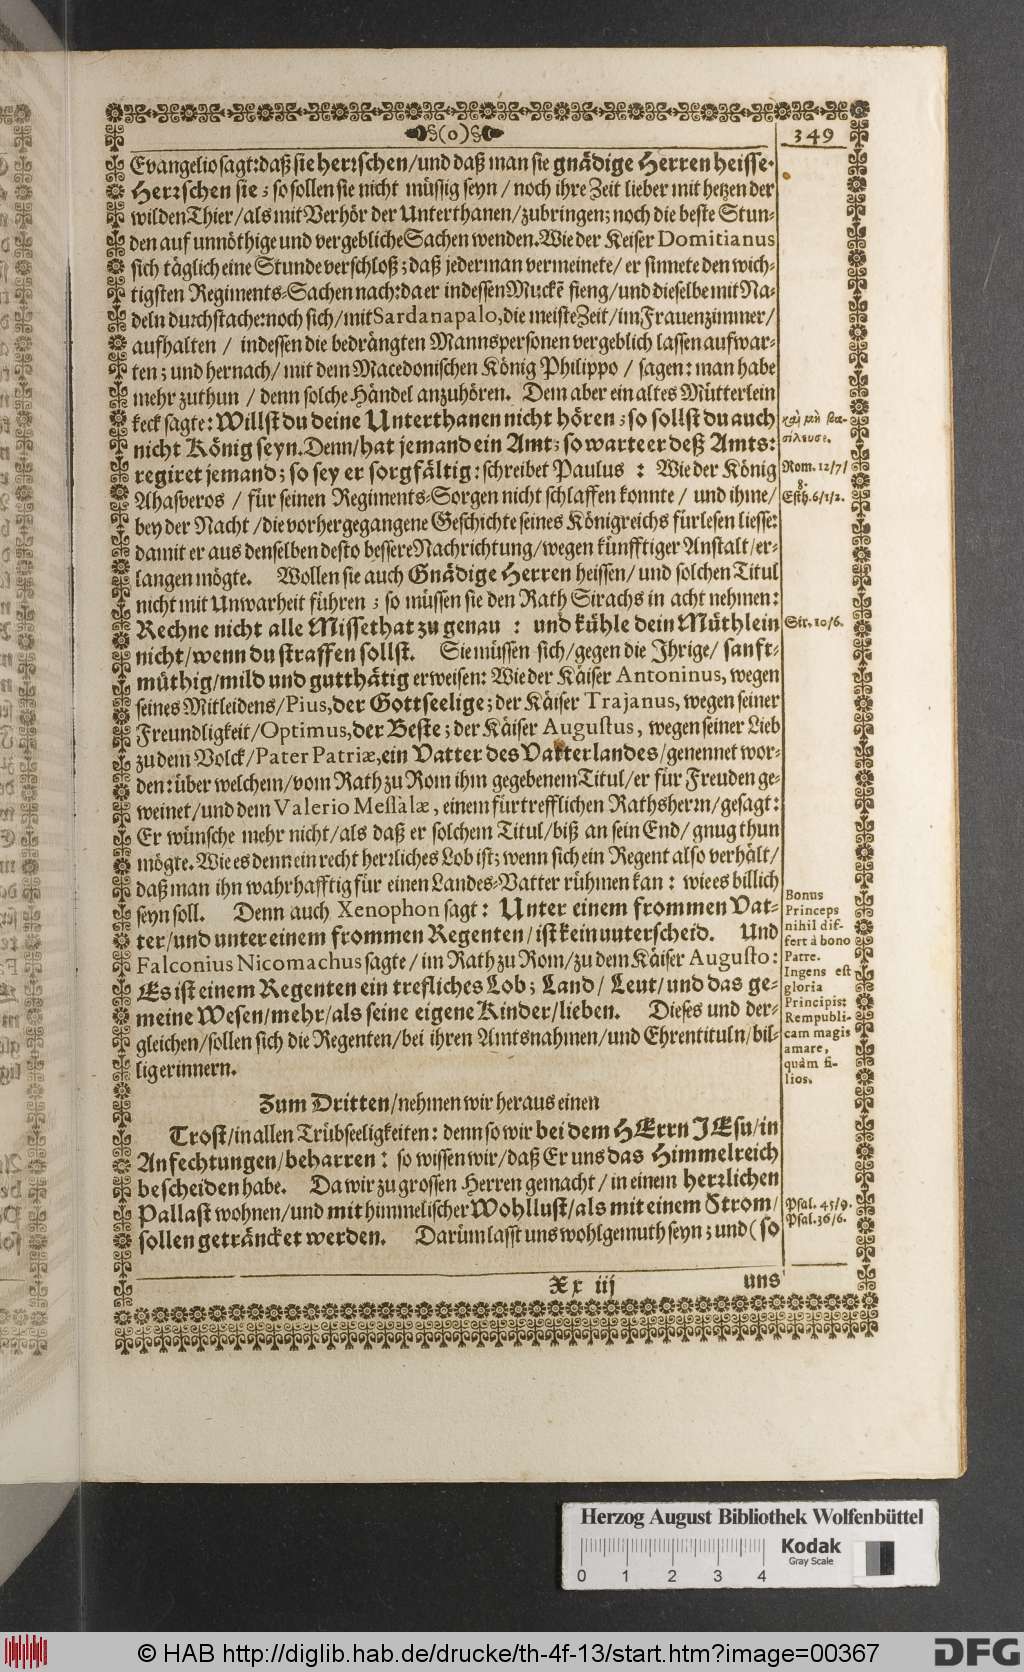 §(o)§
349
Evangelio sagt: daß sie herrschen/und daß man sie gnädige Herren heisse.
Herrschen sie; so sollen sie nicht müssig seyn/noch ihre Zeit lieber mit hetzen der
wilden Thier/als mit Verhör der Unterthanen/zubringen; noch die beste Stun-
den auf unnöthige und vergebliche Sachen wenden. Wie der Keiser Domitianus
sich täglich eine Stunde verschloß; daß jederman vermeinete/er sinnete den wich-
tigsten Regiments-Sachen nach: da er indessen Muckẽ fieng/und dieselbe mit Na-
deln durchstache: noch sich/mit Sardanapalo, die meiste Zeit/im Frauenzimmer/
aufhalten/indessen die bedrängten Mannspersonen vergeblich lassen aufwar-
ten; und hernach/mit dem Macedonischen König Philippo/sagen: man habe
mehr zuthun/denn solche Händel anzuhören. Dem aber ein altes Mütterlein
keck sagte: Willst du deine Unterthanen nicht hören; so sollst du auch
nicht König seyn. Denn/hat jemand ein Amt; so warte er deß Amts:
regiret jemand; so sey er sorgfältig: schreibet Paulus: Wie der König
Ahasveros/für seinen Regiments-Sorgen nicht schlaffen konnte/und ihme/
bey der Nacht/die vorhergegangene Geschichte seines Königreichs fürlesen liesse:
damit er aus denselben desto bessere Nachrichtung/wegen künfftiger Anstalt/er-
langen mögte. Wollen sie auch Gnädige Herren heissen/und solchen Titul
nicht mit Unwarheit führen; so müssen sie den Rath Sirachs in acht nehmen:
Rechne nicht alle Missethat zu genau: und kühle dein Müthlein
nicht/wenn du straffen sollst. Sie müssen sich/gegen die Ihrige/sanft-
müthig/mild und gutthätig erweisen: Wie der Käiser Antoninus, wegen
seines Mitleidens/Pius, der Gottseelige; der Käiser Trajanus, wegen seiner
Freundligkeit/Optimus, der Beste; der Käiser Augustus, wegen seiner Lieb
zu dem Volck/Pater Patriæ, ein Vatter des Vatterlandes/genennet wor-
den: über welchem/vom Rath zu Rom ihm gegebenem Titul/er für Freuden ge-
weinet/und dem Valerio Messalæ, einem fürtrefflichen Rathsherrn/gesagt:
Er wünsche mehr nicht/als daß er solchem Titul/biß an sein End/gnug thun
mögte. Wie es denn ein recht herrliches Lob ist; wenn sich ein Regent also verhält/
daß man ihn wahrhafftig für einen Landes-Vatter rühmen kan: wie es billich
seyn soll. Denn auch Xenophon sagt: Unter einem frommen Vat-
ter/und unter einem frommen Regenten/ist kein unterscheid. Und
Falconius Nicomachus sagte/im Rath zu Rom/zu dem Käiser Augusto:
Es ist einem Regenten ein trefliches Lob; Land/Leut/und das ge-
meine Wesen/mehr/als seine eigene Kinder/lieben. Dieses und der-
gleichen/sollen sich die Regenten/bei ihren Amtsnahmen/und Ehrentituln/bil-
lig erinnern.
Zum Dritten/nehmen wir heraus einen
Trost/in allen Trübseeligkeiten: denn so wir bei dem HErrn JEsu/in
Anfechtungen/beharren: so wissen wir/daß Er uns das Himmelreich
bescheiden habe. Da wir zu grossen Herren gemacht/in einem herrlichen
Pallast wohnen/und mit himmelischer Wohllust/als mit einem Strom/
sollen geträncket werden. Darüm lasst uns wohlgemuth seyn; und (so
Xx iij
uns
καὶ μὴ βα-
σίλευσε.
Rom. 12/7/
8.
Esth. 6/1/2.
Sir. 10/6.
Bonus
Princeps
nihil dif-
fert à bono
Patre.
Ingens est
gloria
Principis:
Rempubli-
cam magis
amare,
quàm fi-
lios.
Psal. 45/9.
Psal. 36/6.
Herzog August Bibliothek Wolfenbüttel
Kodak
Gray Scale
0 1 2 3 4
© HAB http://diglib.hab.de/drucke/th-4f-13/start.htm?image=00367
DFG